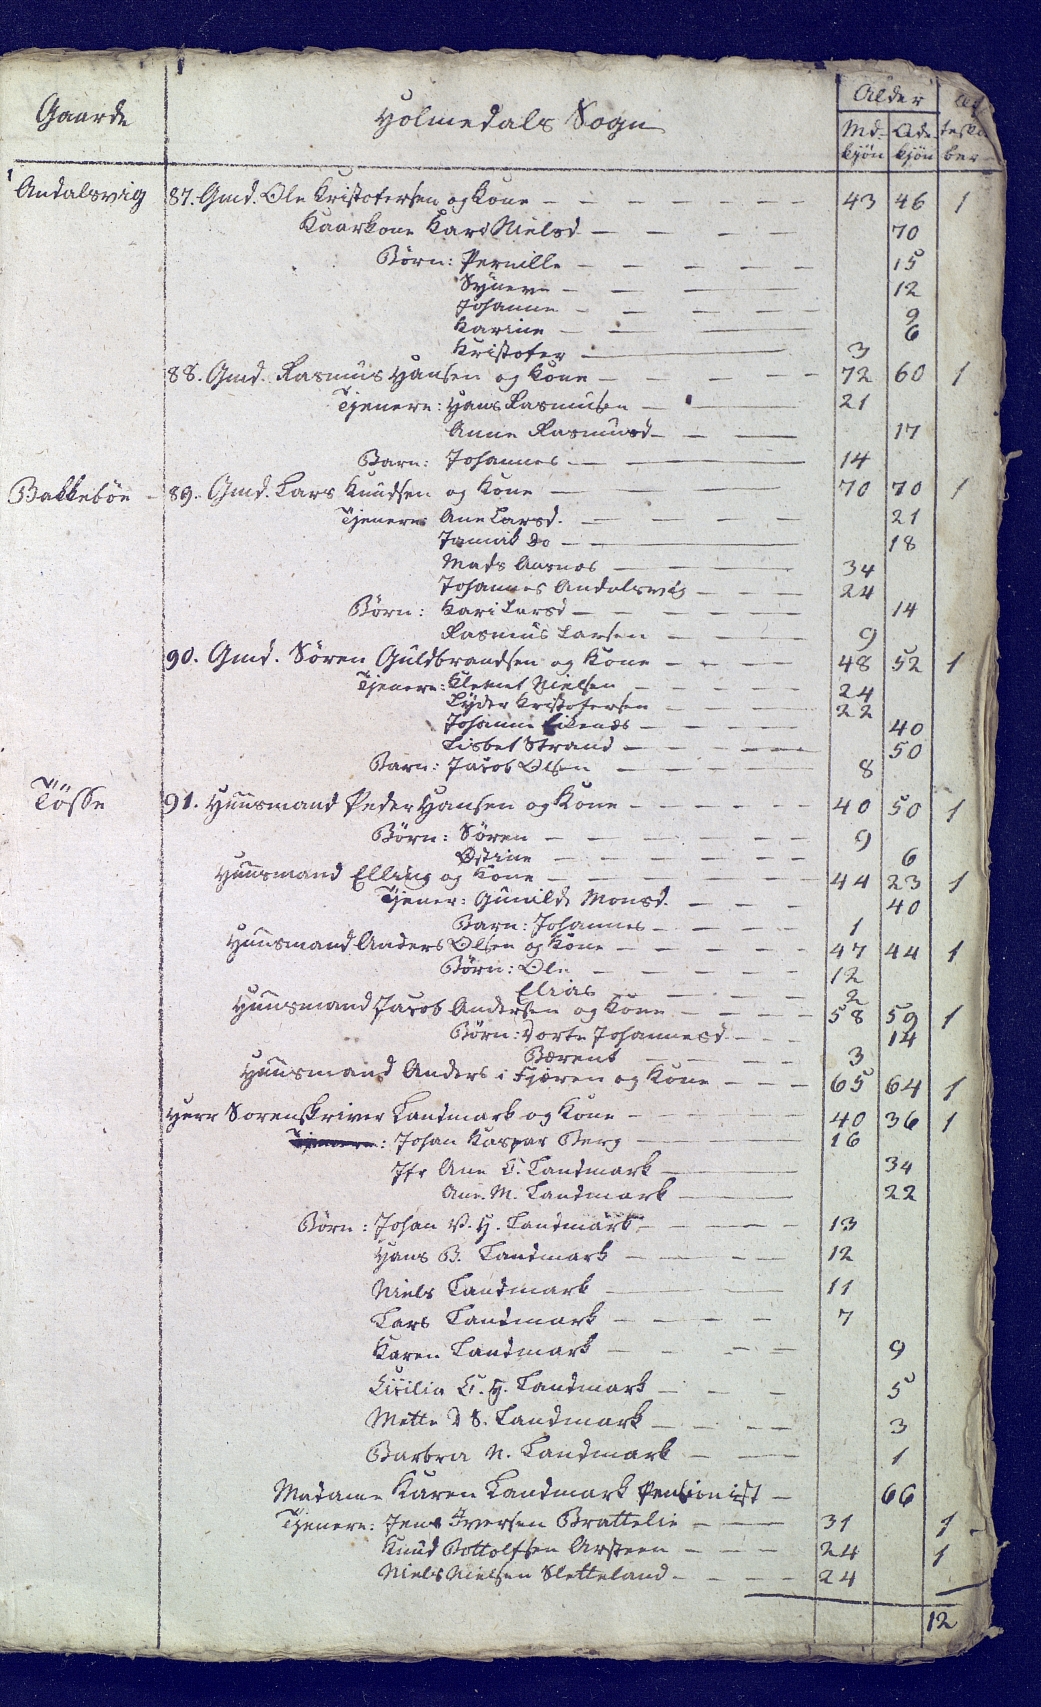 Gaarde Holmedals Sogn Alder
Md- Qde
kjön kjön ber
Andalsvig 87. Gmd. Ole Kristofersen og Kone 43 46 1
Kaarkone Kari Nielsd 70
Börn: Pernille 15
Synneve 12
Johanne 9
Karine 6
Kristofer 3
88. Gmd. Rasmus Hansen og Kone 72 60 1
Tjenere: Hans Rasmusen 21
Anne Rasmusd 17
Barn: Johannes 14
Bakkeböe 89. Gmd. Lars Knudsen og Kone 70 70 1
Tjenere Ane Larsd. 21
Jannik do 18
Mads Aasnes 34
Johannes Andalsvig 24
Börn: Kari Larsd 14
Rasmus Larsen 9
90. Gmd. Sören Guldbrandsen og Kone 48 52 1
Tjenere: Klemet Nielsen 24
Lyder Kristofersen 22
Johanne Eikenæs 40
Lisbet Strand 50
Barn: Jacob Olsen 8
Tösse 91. Huusmand Peder Hansen og Kone 40 50 1
Börn: Sören 9
Östine 6
Huusmand Elling og Kone 44 23 1
Tjener: Gunilde Monsd. 40
Barn: Johannes 1
Huusmand Anders Olsen og Kone 47 44 1
Börn: Ole 12
Elias 2
Huusmand Jacob Andersen og Kone 58 59 1
Börn: Dorte Johannesd 14
Bærent 3
Huusmand Anders i Fjæren og Kone 65 64 1
Herr Sorenskriver Landmark og Kone 40 36 1
Tjenere: Johan Kaspar Berg 16
Jfr Ane C. Landmark 34
Ane. M. Landmark 22
Börn: Johan V. H. Landmark 13
Hans B. Landmark 12
Niels Landmark 11
Lars Landmark 7
Karen Landmark 9
Cicilia C. H. Landmark 5
Mette D S. Landmark 3
Barbra N. Landmark 1
Madame Karen Landmark Pensionist 66
Tjenere: Jens Iversen Brattelie 31 1
Knud Bottolfsen Arsteen 24 1
Niels Nielsen Sletteland 24
12